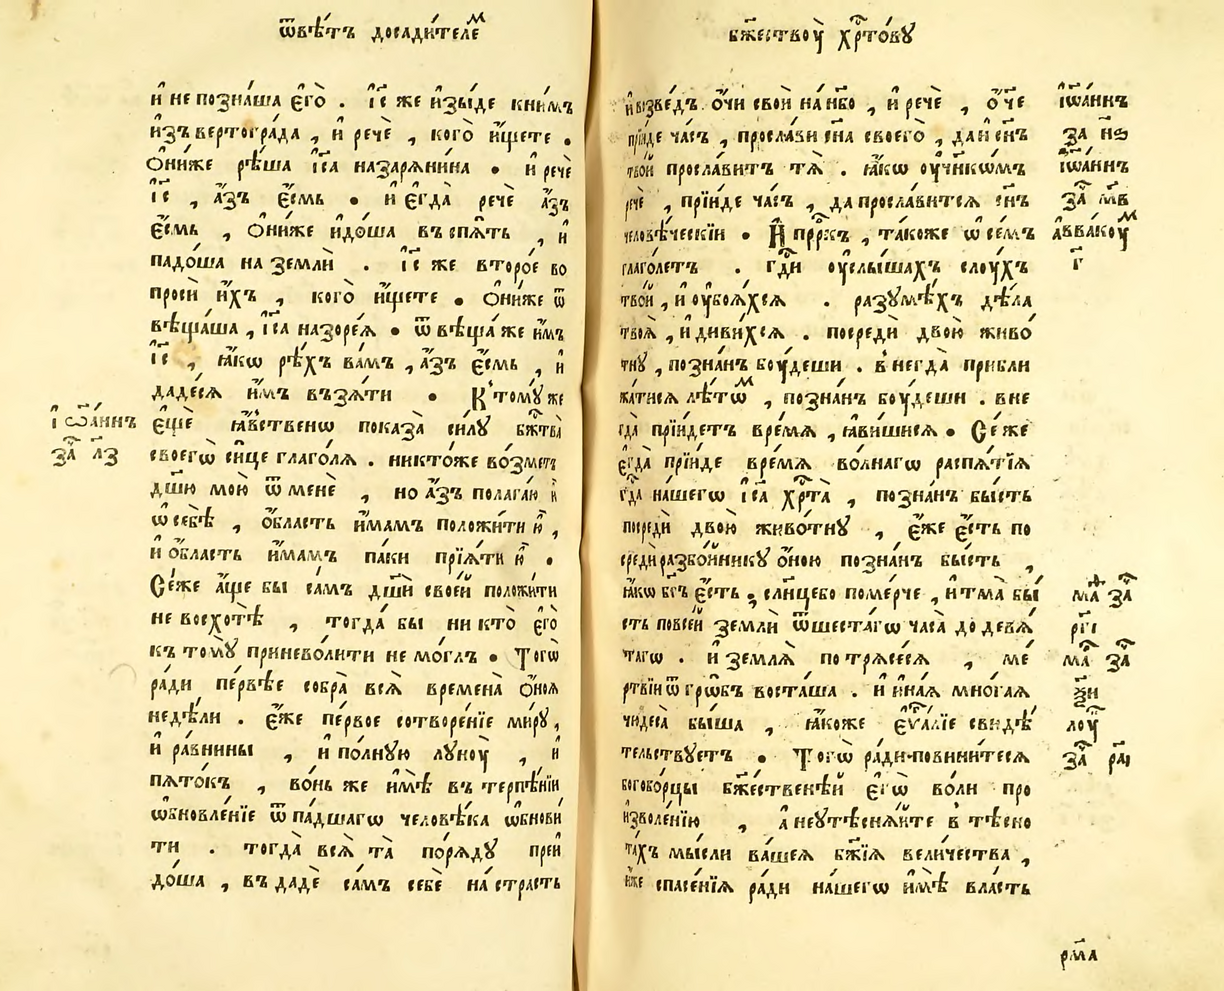 ѿвѣ́тъ досади́телеⷨ
и҆ не позна́ша є҆го̀ . і҆с же и҆зы́де кни́мъ
и҆зъ вертогра́да , и҆ речѐ , кого̀ и҆́щете .
Ѻ҆ни́же рѣ́ша і҆са назаряни́на • и҆ речѐ
і҆с , а҆́зъ є҆́смь • и҆ є҆гда̀ речѐ а҆́зъ
є҆́смь , Ѻ҆ни́же идо́ша въ спѧ́ть , и҆
падо́ша на землѝ . і҆с же второ́е во
проси̂ и҆́хъ , кого̀ и҆́щете • Ѻ҆ни́же ѿ
вѣща́ша , і҆са назоре́ѧ • ѿ вѣща́ же и҆́мъ
і҆с , ꙗ҆́кѡ рѣ́хъ ва́мъ , а҆́зъ є҆́смь , и҆
даде́сѧ и҆́мъ възѧ́ти • К̾ тому́ же
І҆ѡа́ннъ
за҄ л҃з
є҆щѐ ꙗ҆́вственѡ показа̀ си́лꙋ бж҃тва̀
своегѡ̀ си́це глаго́лѧ . никто́же во́зметъ
дш҃ю мою̀ ѿ менѐ , но а҆́зъ полага́ю ю҆̀
ѡ себѣ̀ , ѻ҆́бласть и҆́мамъ положи́ти ю҆̀ ,
и҆ ѻ҆́бласть и҆́мамъ па́ки прїѧ́ти ю҆̀ •
Се́же а҆́ще бы са́мъ дш҃и свое́й положи́ти
не восхотѣ̀ , тогда́ бы ни кто̀ є҆го̀
къ томꙋ̀ приневоли́ти не мо́глъ • Тогѡ̀
ра́ди пе́рвѣе собра̀ всѧ̀ времена̀ ѻ҆́ноѧ
недѣ́ли . є҆́же пе́рвое сотворе́нїе ми́рꙋ ,
и҆ ра́внины , и҆ по́лную лꙋноу̀ , и҆
пѧто́къ , во́нь же и҆мѣ̀ въ терпѣ́нїи
ѡ҆бновле́нїе ѿ па́дшагѡ человѣ́ка ѡ҆бнови
ти . тогда̀ всѧ̀ та̀ поря́дꙋ преи
до́ша , въ дадѐ са́мъ себѐ на стра́сть
бж҃ествоу̀ хрⷭ҇то́вꙋ
и҆ възве́дъ ѻ҆́чи своѝ на́ нб҃о , и҆ речѐ , ѻ҆́ч҃е
прїи́де ча́съ , просла́ви сн҃а своего̀ , да и҆ сн҃ъ
тво́й просла́витъ тѧ̀ . ꙗ҆́кѡ оу҆ч҃нкѡ́мъ
речѐ , прїи́де ча́съ , да просла́витсѧ сн҃ъ
человѣ́ческїи • И҆ пррⷪ҇къ , та́коже ѡ се́мъ
глаго́летъ . гдⷭ҇и оу҆слы́шахъ слоу́хъ
тво́й , и҆ оу҆боѧ́хсѧ . разꙋмѣ́хъ дѣ́ла
твоѧ̀ , и҆ диви́хсѧ . посредѝ двою̀ живо́
тнꙋ , позна́нъ боу́деши . в̾негда̀ прибли
жа́тисѧ лѣ́тѡⷨ , позна́нъ боу́деши . вне
гда̀ прїи́детъ вре́мѧ , ꙗ҆ви́шисѧ • Се́ же
є҆гда̀ прїи́де вре́мѧ во́лнагѡ распѧ́тїѧ
гдⷭ҇а на́шегѡ і҆са хрⷭ҇та̀ , позна́нъ бы́сть
посредѝ двою̀ живо́тнꙋ , є҆́же є҆́сть по
средѝ разбо́йникꙋ ѻ҆́ною позна́нъ бы́сть ,
ꙗ҆́кѡ бг҃ъ є҆́сть , сл҃нце бо поме́рче , и҆ тма̀ бы́
сть по все́й землѝ ѿ шеста́гѡ часа̀ до девѧ́
тагѡ . и҆ землѧ̀ по трѧсе́сѧ , ме́
ртвїи ѿ гро́бъ воста́ша . и҆ и҆на́ѧ мно́гаѧ
чюдеса̀ бы́ша , ꙗ҆́коже є҆ѵⷢ҇а́лїе свидѣ́
тельствуетъ • Тогѡ̀ ра́ди повини́тесѧ
богобо́рцы бж҃е́ственѣй є҆гѡ̀ во́ли про
изволе́нїю , а҆ не утѣсня́йте в̾ тѣсно
та́хъ мы́сли ва́шеѧ бж҃їѧ вели́чества ,
и҆́же спасе́нїѧ ра́ди на́шегѡ и҆мѣ̀ вла́сть
І҆ѡа́ннъ
за҄ н҃ѳ
І҆ѡа́ннъ
за҄ м҃в
а҆ввакоу́ⷨ
г҃
маⷴ҇ за҄
рг҃і
маⷴ҇ за҄
лоу҄
за҄ ра҃і
рм҃а